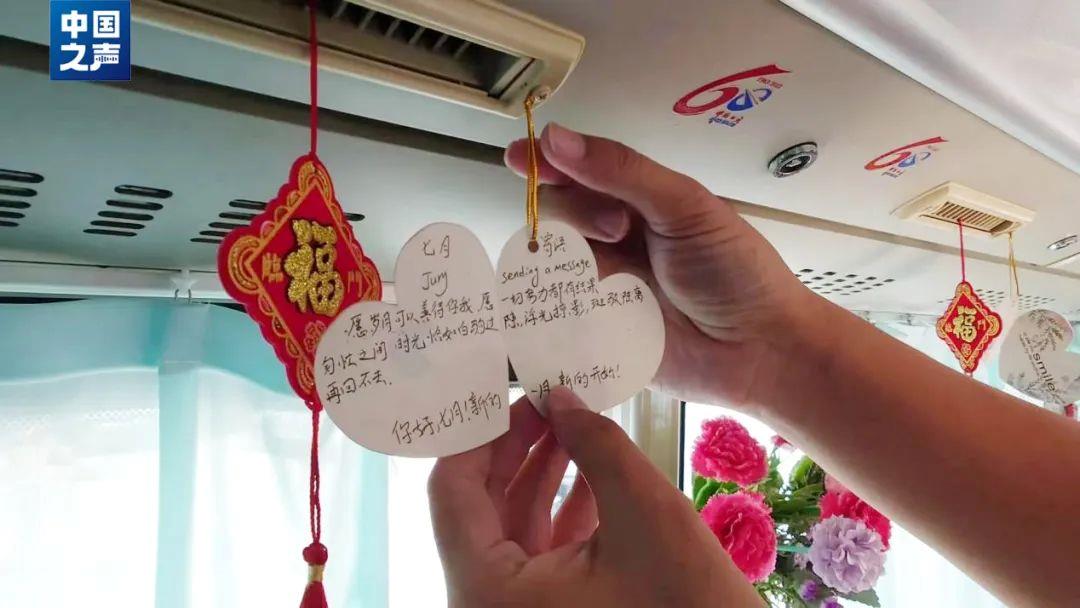 中国
之声
福
臨
門
七月
Jury
愿岁月可以善待你我,愿
匆忙之间 时光恰如白驹过
再回不去.
你好,七月!新的
寄语
sending a message
一切努力都有结果
隙,浮光掠影,斑驳陆离
一月 新的开始!
60
福
smile